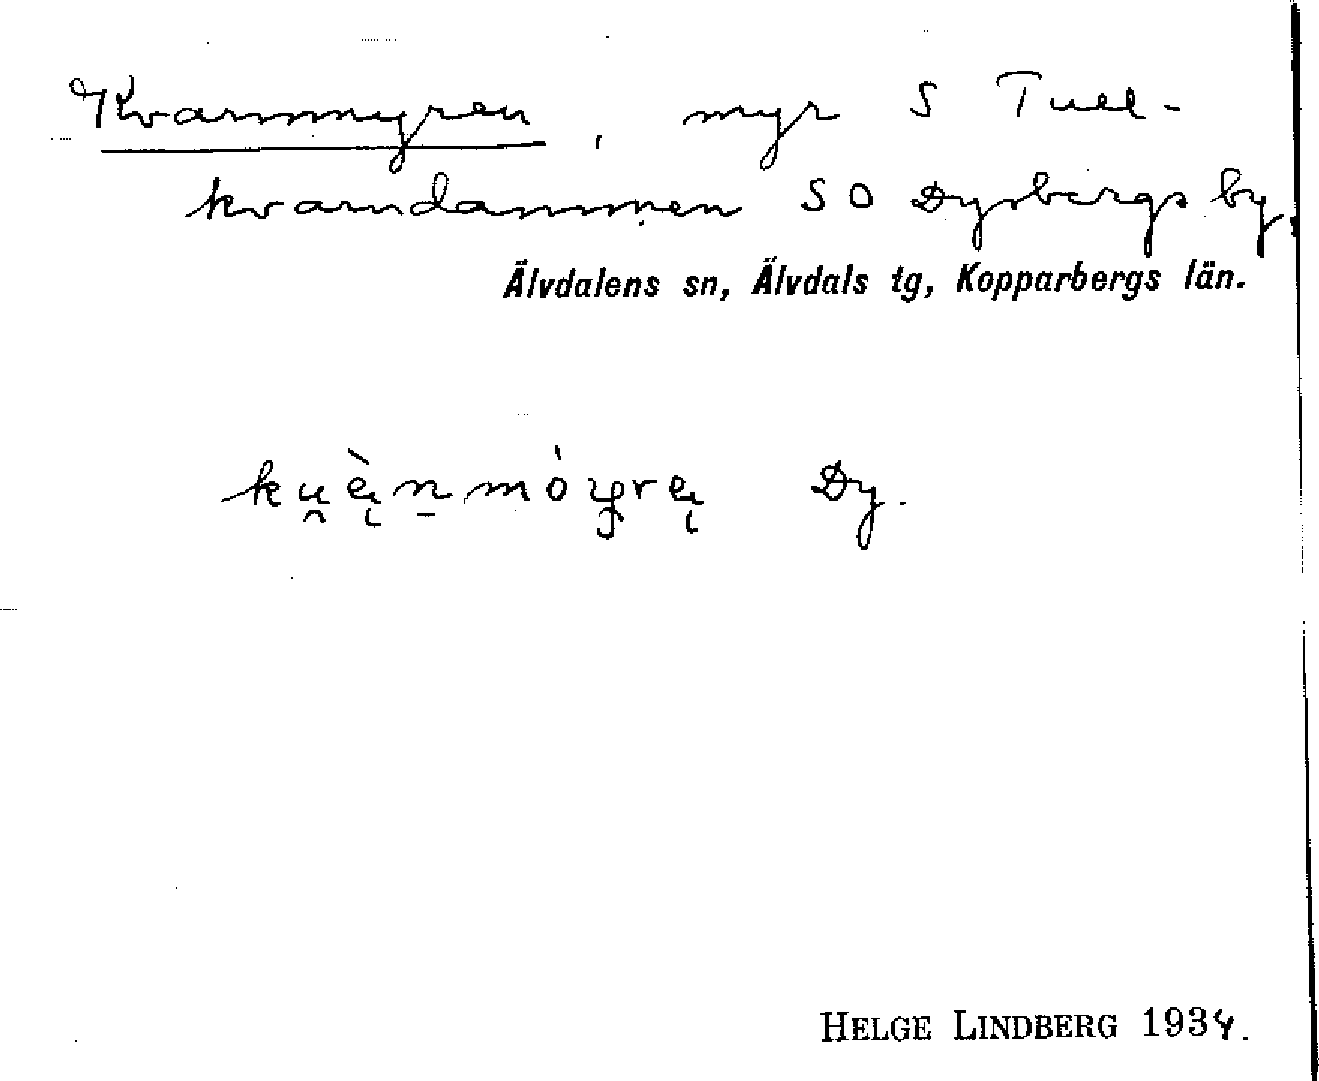 Kvarnmyren, myr S Tull-
kvarndammen SO Dysbergs by.
Älvdalens sn, Älvdals tg, Kopparbergs län.
Dy.
HELGE LINDBERG 1934.